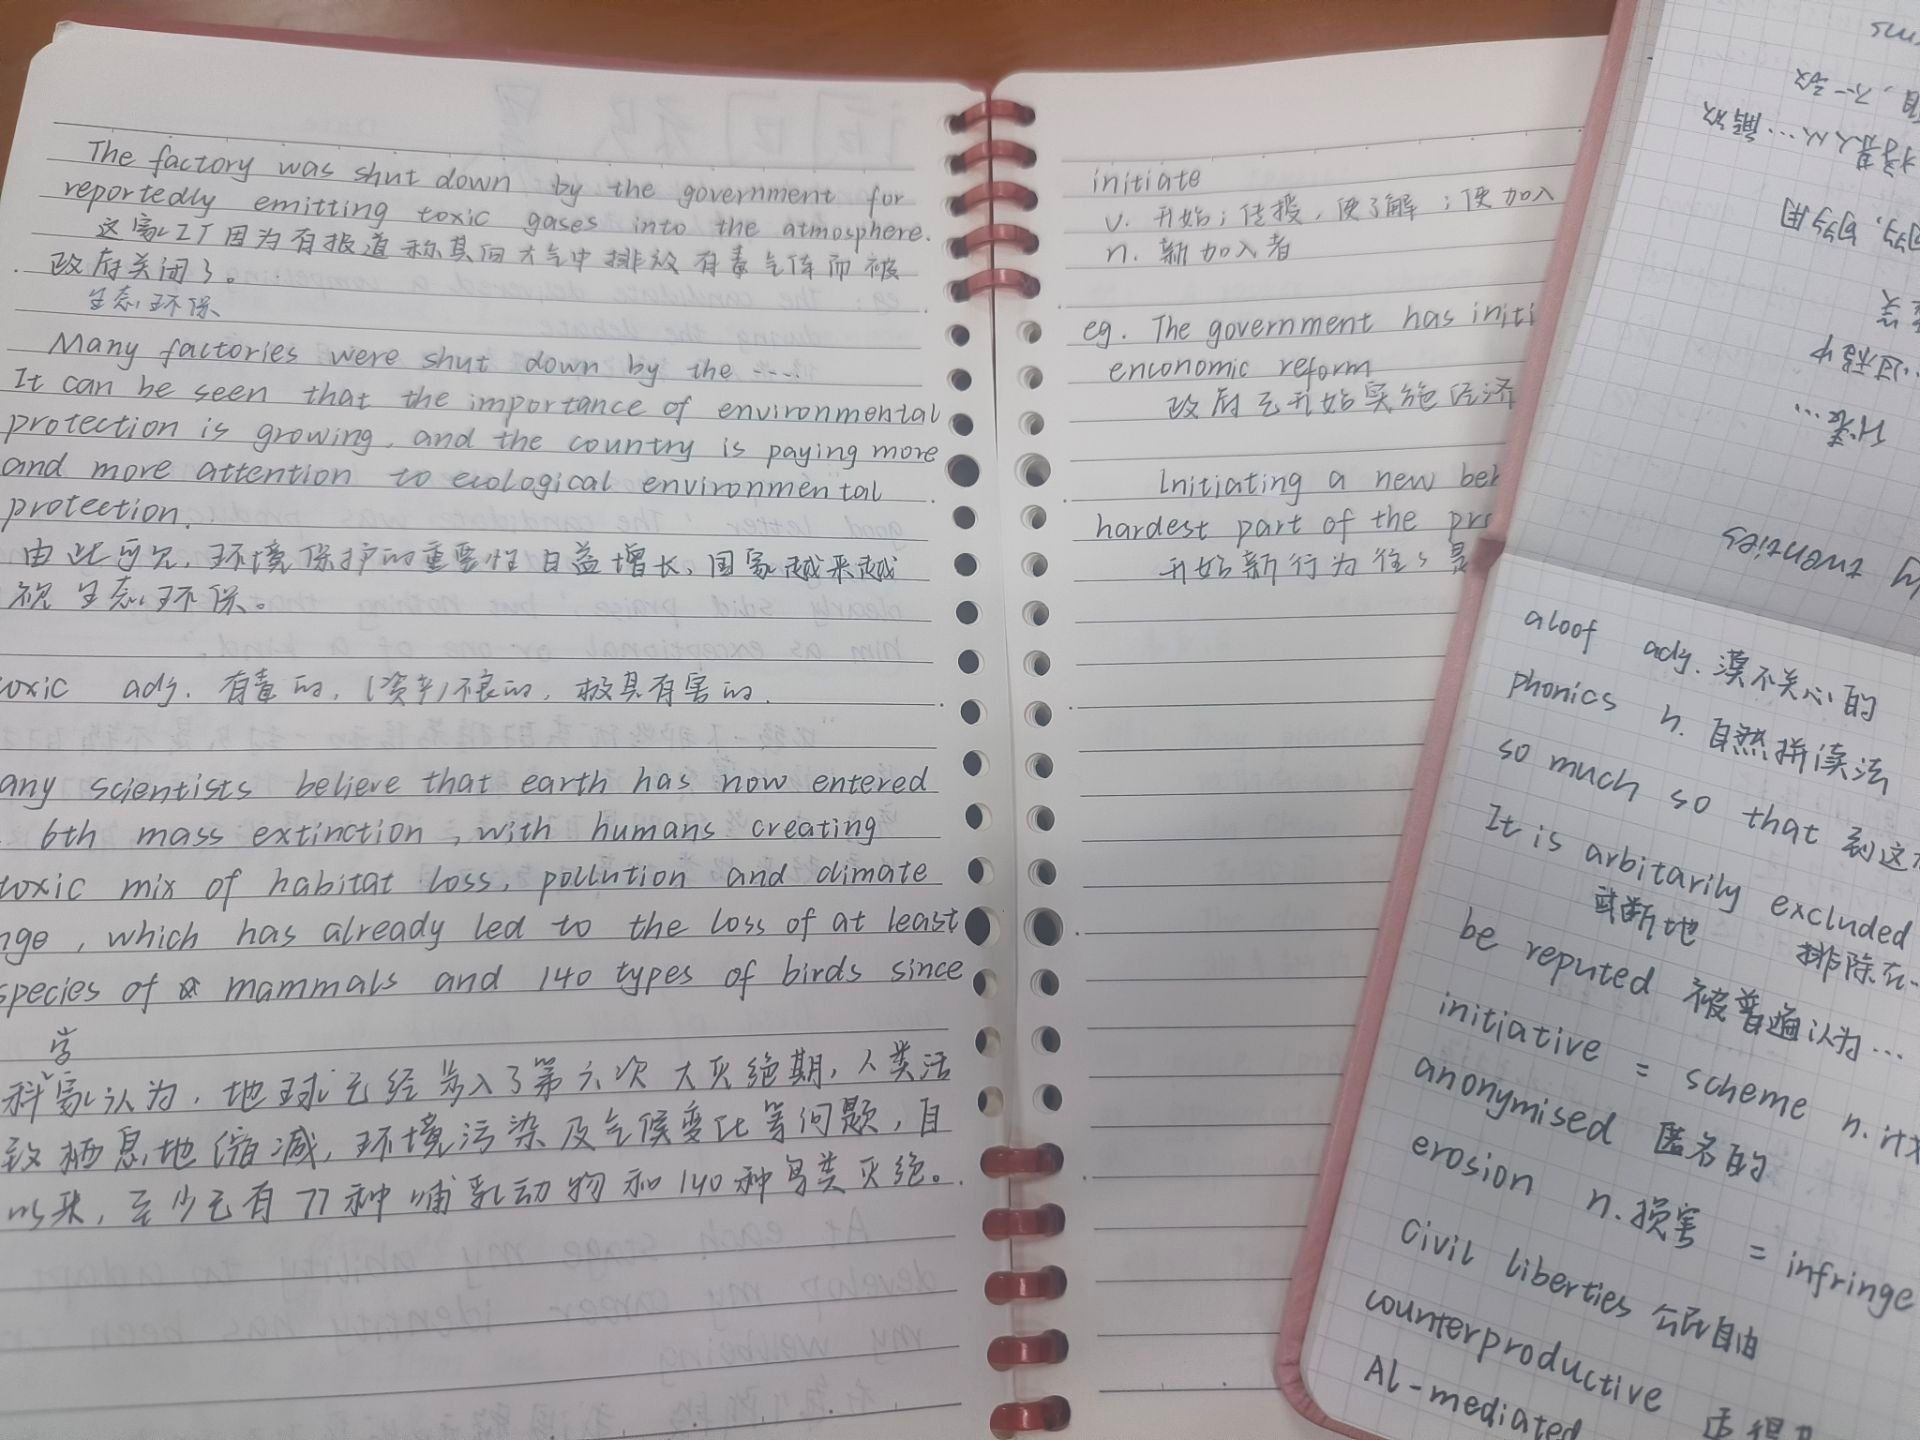 The factory was shut down by the government for
reportedly emitting toxic gases into the atmosphere.
这家工厂因为有报道称其向大气中排放有毒气体而被
政府关闭了。
生态环保
Many factories were shut down by the ....
It can be seen that the importance of environmental
protection is growing, and the country is paying more
and more attention to ecological environmental
protection.
由此可见,环境保护的重要性日益增长,国家越来越
视生态环保。
oxic adj. 有毒的,(资产)不良的,极具有害的.
any scientists believe that earth has now entered
6th mass extinction, with humans creating
toxic mix of habitat loss, pollution and climate
nge, which has already led to the loss of at least
species of mammals and 140 types of birds since
学
科家认为,地球已经步入了第六次大灭绝期,人类活
致栖息地缩减,环境污染及气候变化等问题,自
以来,至少已有77种哺乳动物和140种鸟类灭绝。
initiate
v. 开始;传授,使了解;使加入
n. 新加入者
eg. The government has initi
enconomic reform
政府已开始实施经济
Initiating a new beh
hardest part of the pro
开始新行为往往是
twenties
aloof adj. 漠不关心的
phonics n. 自然拼读法
so much so that 到这
It is arbitarily excluded
武断地 排除在..
be reputed 被普遍认为...
initiative = scheme n. 计划
anonymised 匿名的
erosion n. 损害 = infringe
Civil liberties 公民自由
counterproductive 适得
AI-mediated